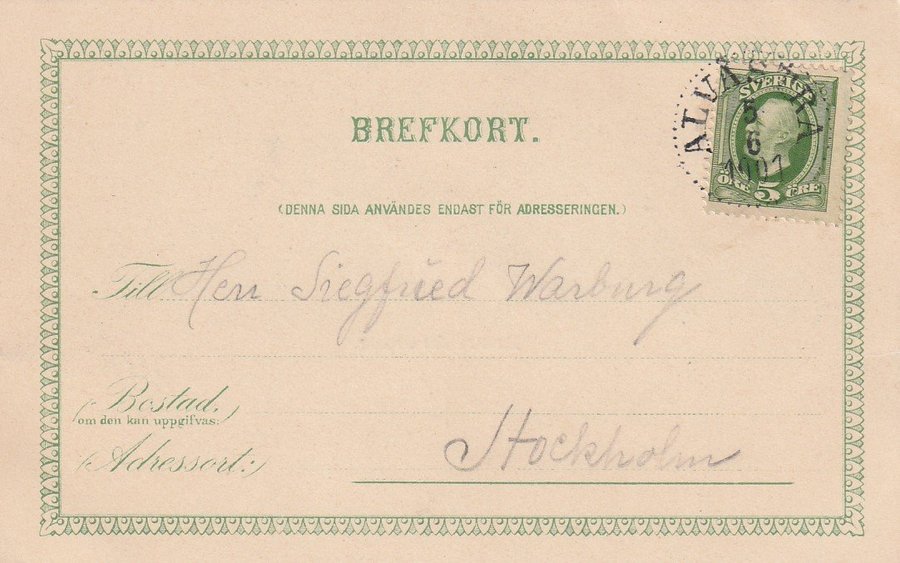 BREFKORT.
ALVASTRA
5
6
1901
SVERIGE
ÖRE 5 ÖRE
(DENNA SIDA ANVÄNDES ENDAST FÖR ADRESSERINGEN.)
Till Herr Siegfried Warburg
(Bostad,
om den kan uppgifvas:)
(Adressort:) Stockholm